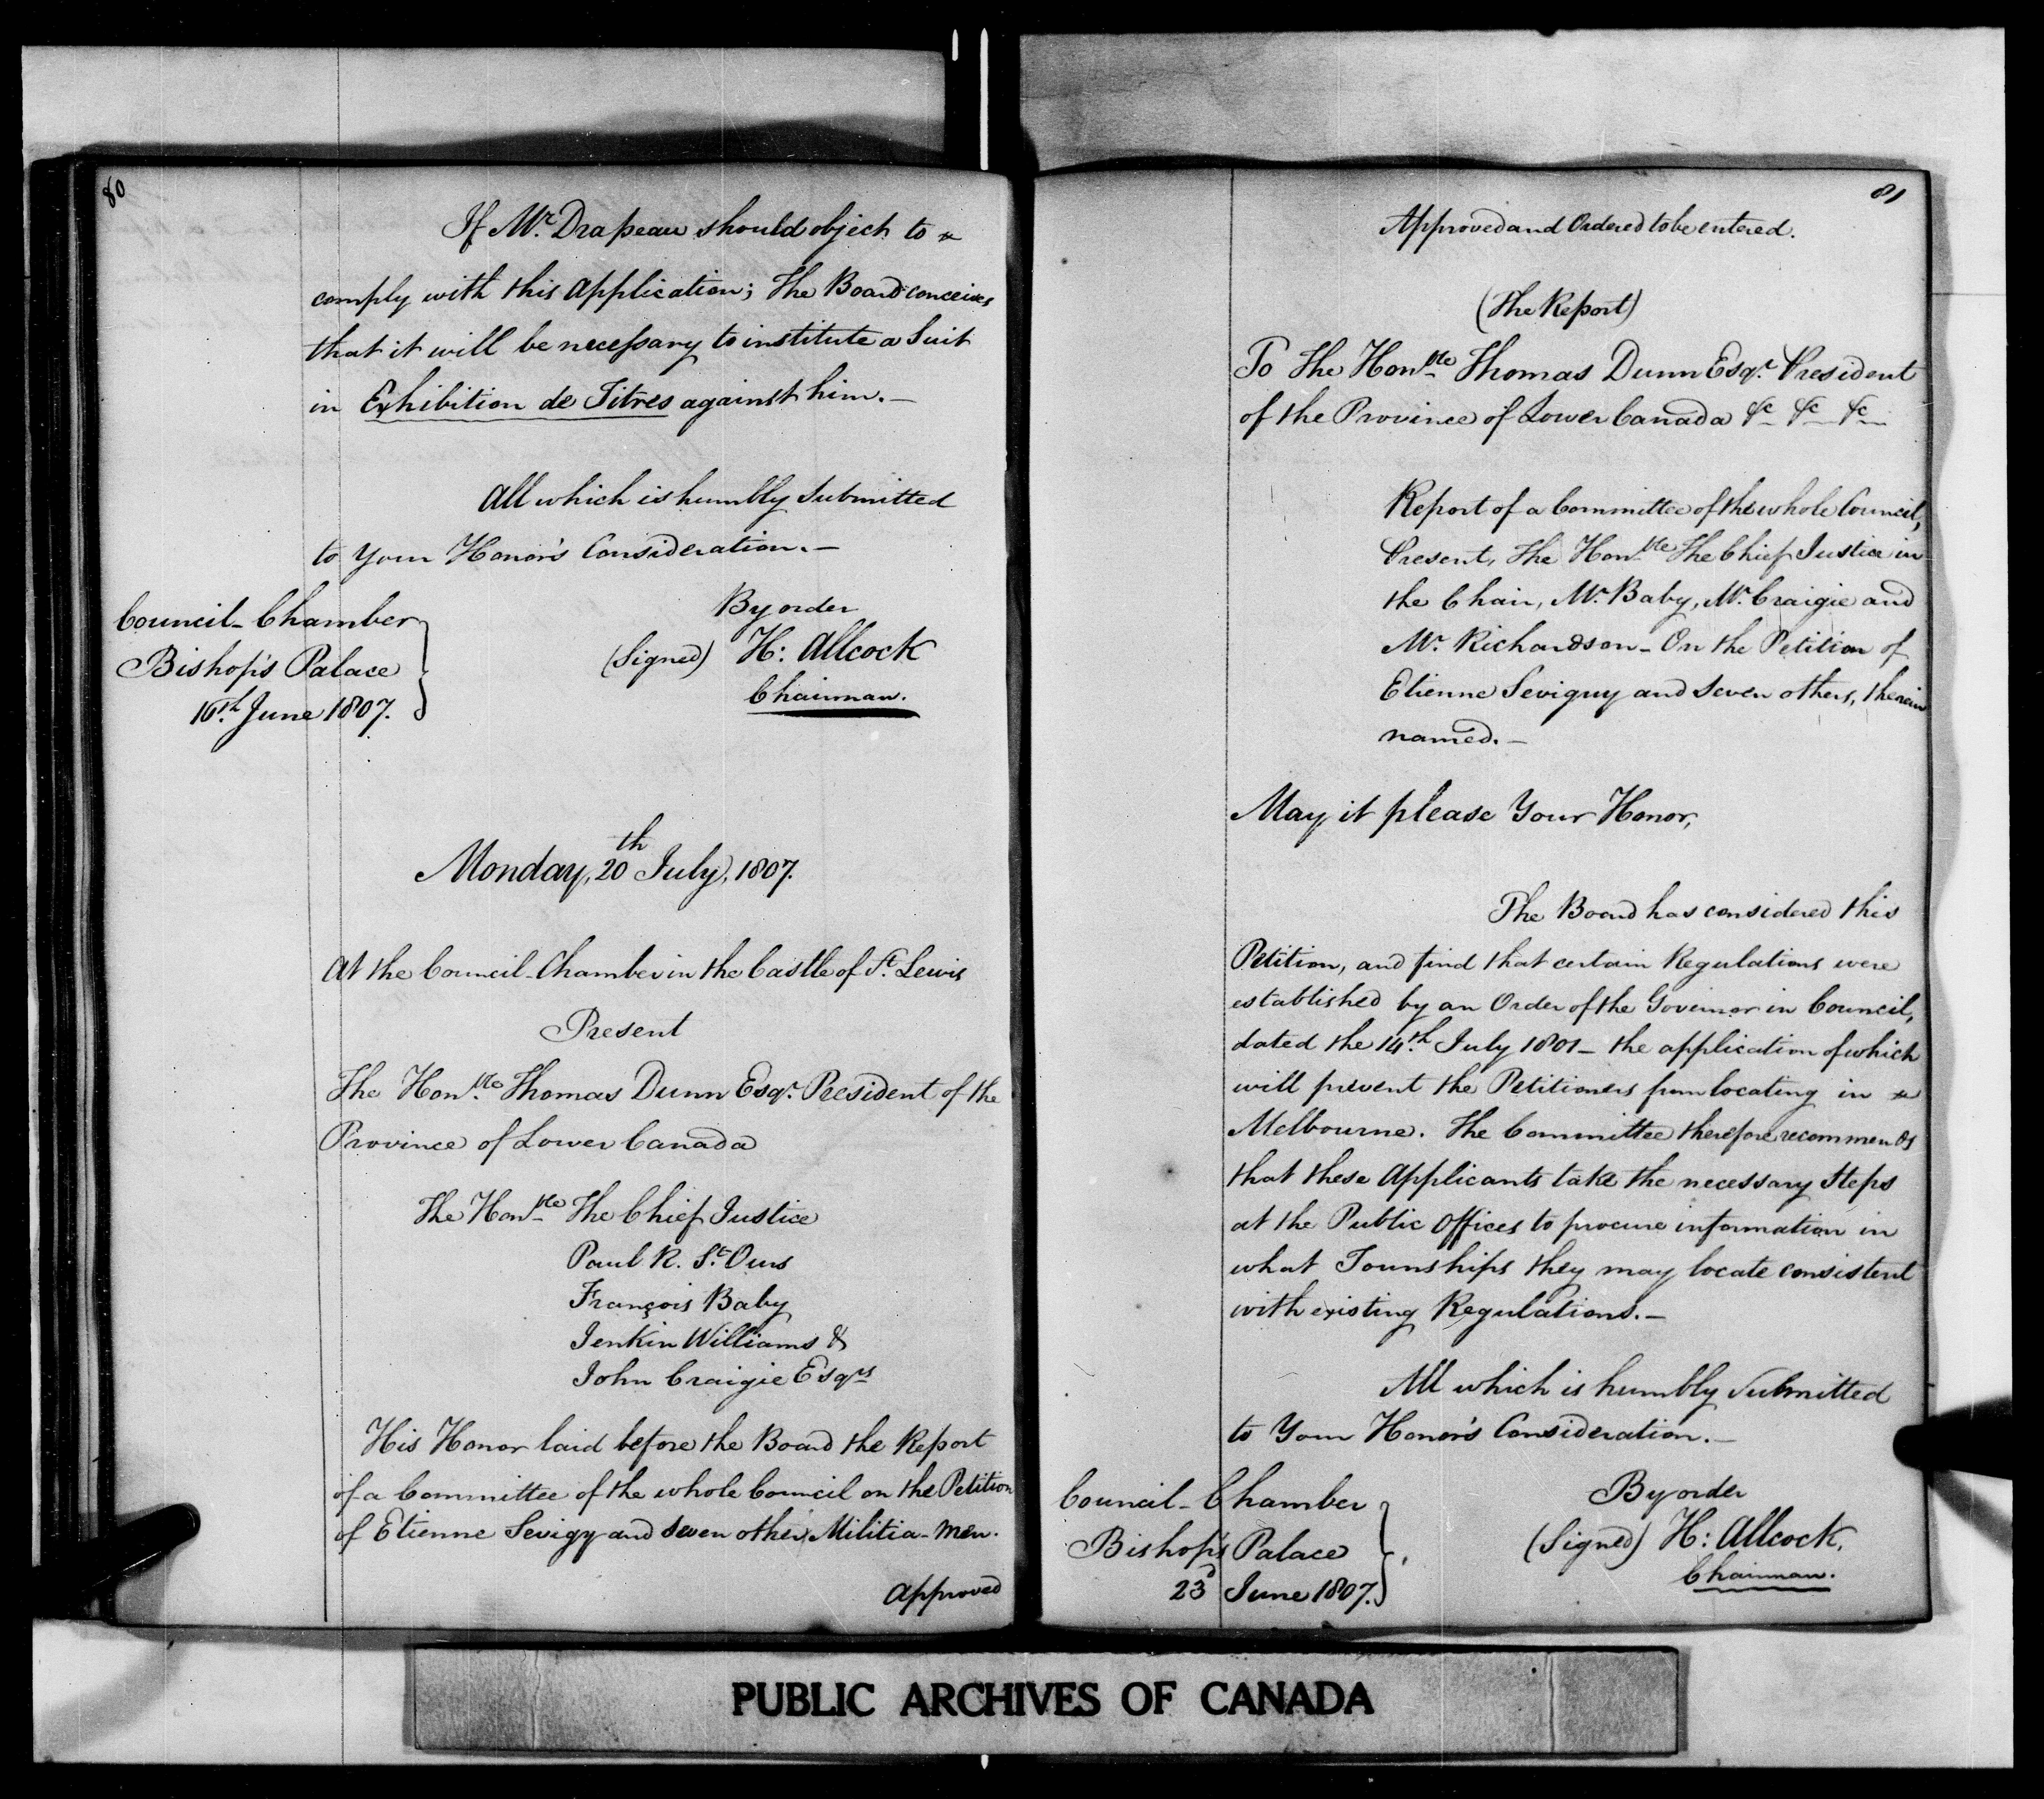 80
If Mr. Drapeau should object to
comply with this Application; The Board conceives
that it will be necessary to institute a Suit
in Exhibition de Titres against him.—
All which is humbly Submitted
to Your Honor's Consideration.—
By order
(Signed) H: Allcock
Chairman.
Council-Chamber
Bishop's Palace
16th June 1807.
Monday, 20th July, 1807.
At the Council-Chamber in the Castle of St. Lewis
Present
The Honble Thomas Dunn Esqr. President of the
Province of Lower Canada
The Honble The Chief Justice
Paul R. St. Ours
François Baby
Jenkin Williams &
John Craigie Esqrs
His Honor laid before the Board the Report
of a Committee of the whole Council on the Petition
of Etienne Sevigy and seven other Militia-men.
Approved
81
Approved and Ordered to be entered.
(The Report)
To The Honble Thomas Dunn Esqr. President
of the Province of Lower Canada &c &c &c
Report of a Committee of the whole Council,
Present, The Honble The Chief Justice in
the Chair, Mr. Baby, Mr. Craigie and
Mr. Richardson - On the Petition of
Etienne Seviguy and Seven others, therein
named.—
May it please Your Honor,
The Board has considered this
Petition, and find that certain Regulations were
established by an Order of the Governor in Council,
dated the 14th July 1801 - the application of which
will prevent the Petitioners from locating in
Melbourne. The Committee therefore recommends
that these Applicants take the necessary Steps
at the Public Offices to procure information in
what Townships they may locate consistent
with existing Regulations.—
All which is humbly Submitted
to Your Honor's Consideration.—
By order
(Signed) H: Allcock.
Chairman.
Council-Chamber
Bishop's Palace
23d June 1807.
PUBLIC ARCHIVES OF CANADA